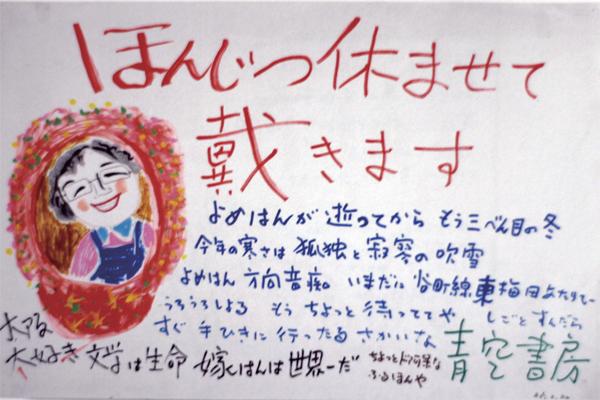 ほんじつ休ませて
戴きます
よめはんが逝ってから もう三べん目の冬
今年の寒さは 孤独と寂寥の吹雪
よめはん 方向音痴 いまだに 谷町線東梅田あたりで
うろうろしよる もう ちょっと待っててや しごとすんだら
すぐ手ひきに行ったるさかいな
青空書房
大阪
大好き 文学は生命 嫁はんは世界一だ
ちょっとド阿呆な
ふるほんや